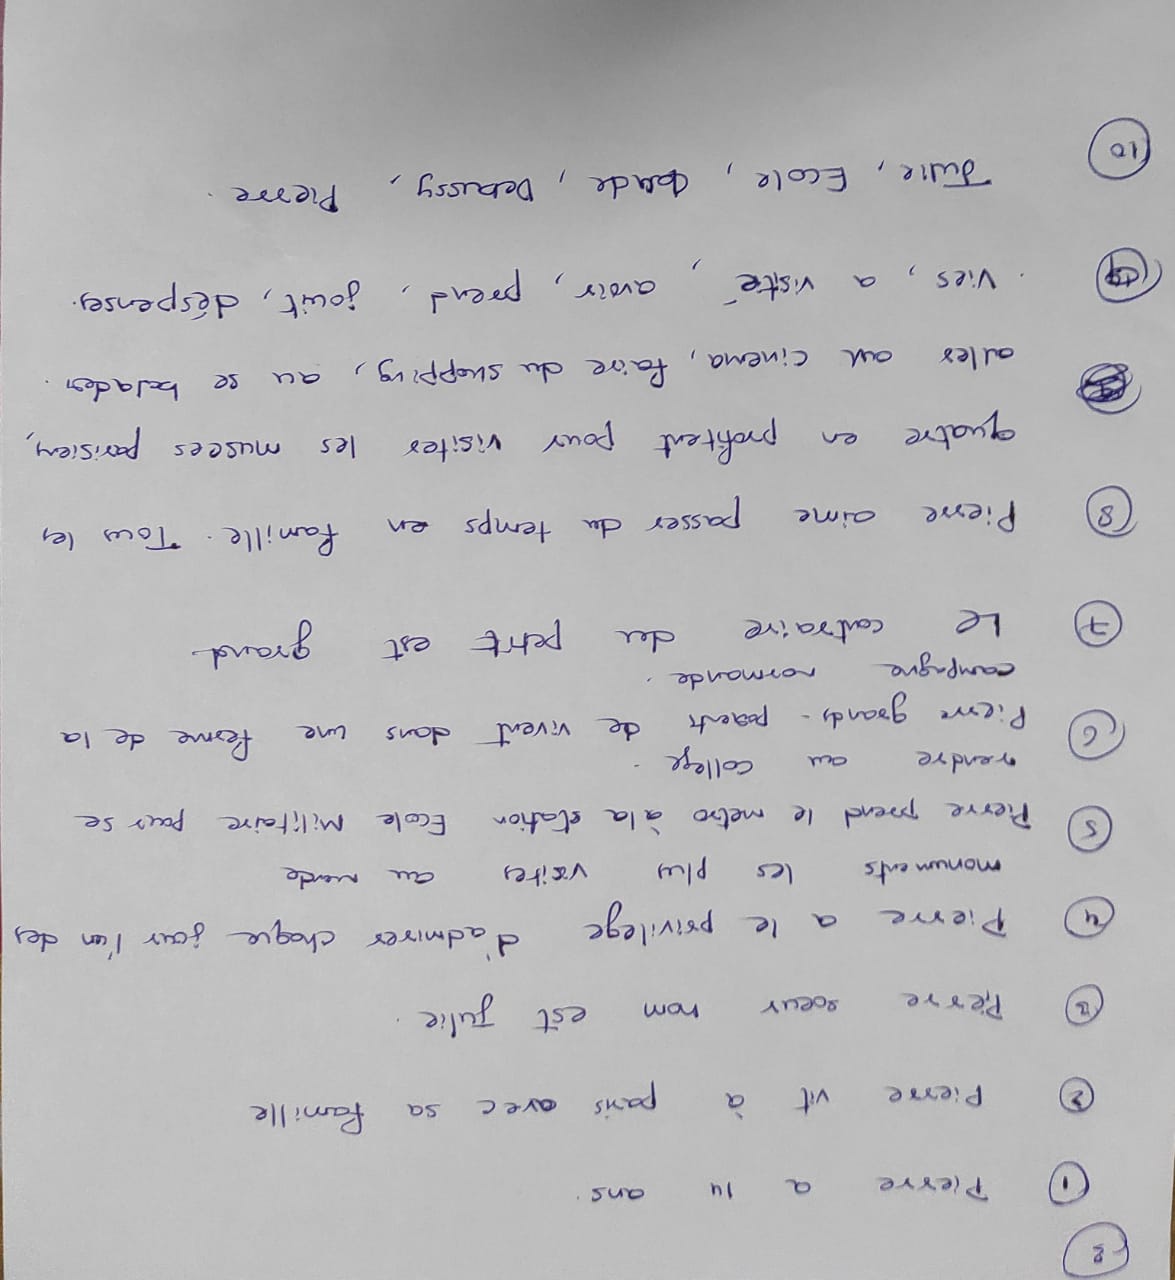 2
① Pierre a 14 ans.
② Pierre vit à paris avec sa famille
③ Pierre soeur nom est Julie.
④ Pierre a le privilege d'admirer chaque jour l'un des
monuments les plus visites au monde
⑤ Pierre prend le metro à la station Ecole Militaire pour se
rendre au college.
⑥ Pierre grands-parents de vivent dans une ferme de la
campagne normande.
⑦ Le contraire du petit est grand.
⑧ Pierre aime passer du temps en famille. Tous les
quatre en profitent pour visiter les musees parisiens,
aller au cinema, faire du shopping, au se balader.
⑨ . Vies, a visité, avoir, prend, jouit, déspenses.
⑩ Julie, Ecole, Debussy, Pierre.